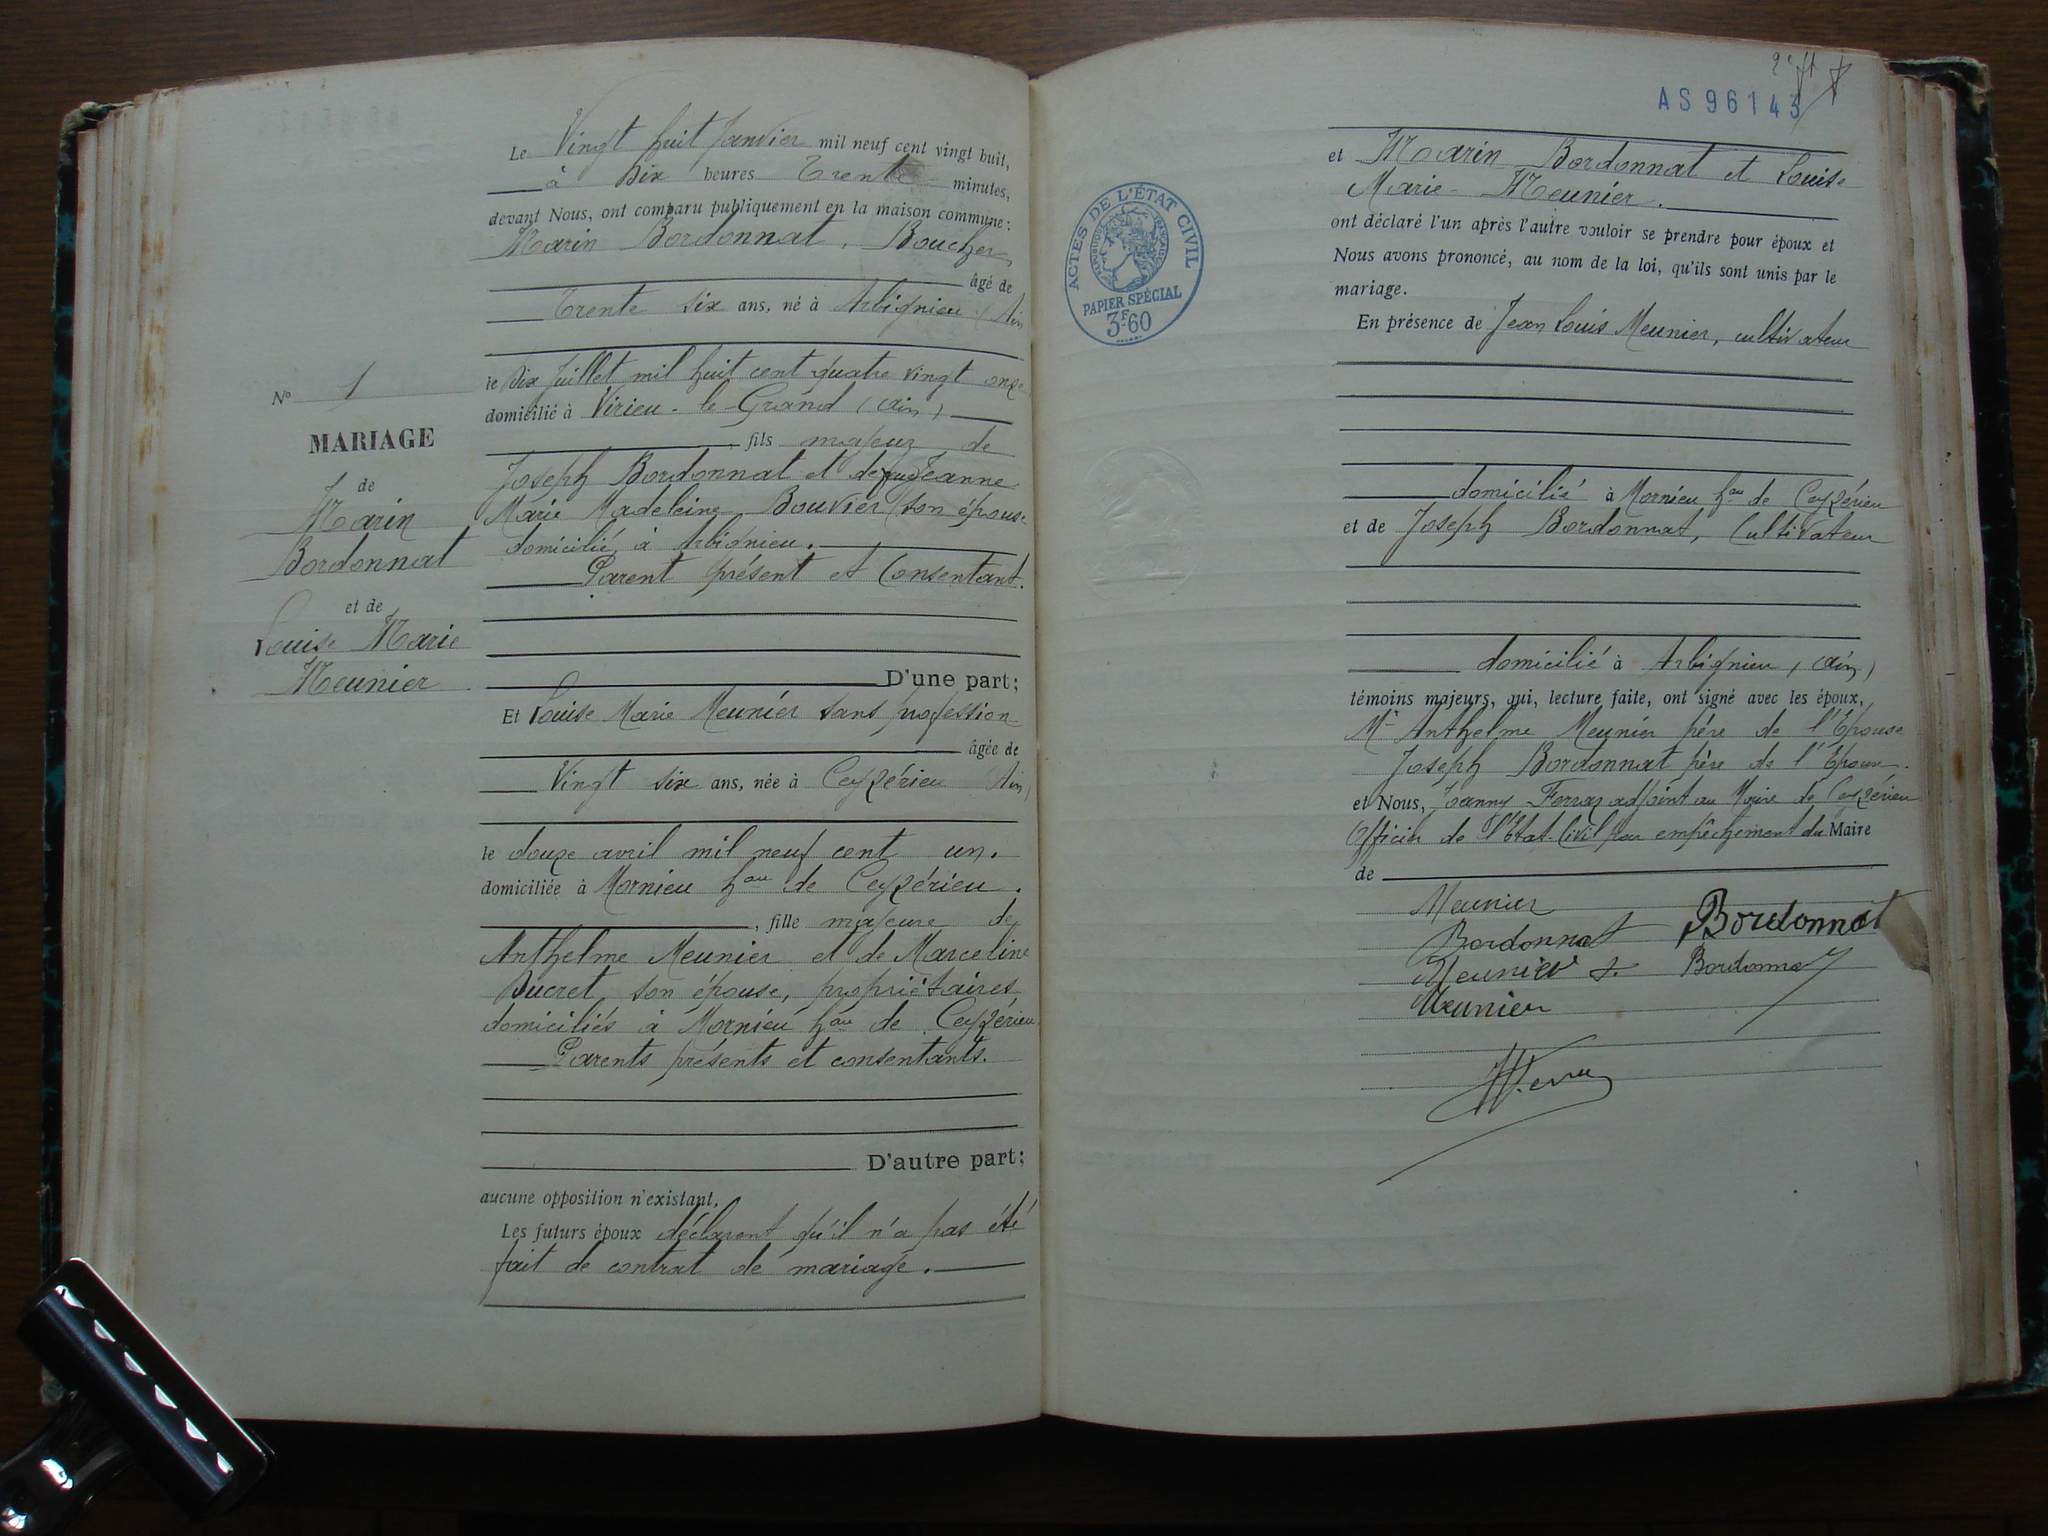 N° 1
MARIAGE
de
Marin
Bordonnat
et de
Louise Marie
Meunier
Le Vingt huit Janvier mil neuf cent vingt huit,
à Dix heures Trente minutes,
devant Nous, ont comparu publiquement en la maison commune :
Marin Bordonnat, Boucher,
âgé de
Trente six ans, né à Arbignieu (Ain
le Dix Juillet mil huit cent quatre vingt onze
domicilié à Virieu-le-Grand (Ain)
, fils majeur de
Joseph Bordonnat et de feue Jeanne
Marie Madeleine Bouvier son épouse
domicilié à Arbignieu.
Parent présent et Consentant.
D'une part ;
Et Louise Marie Meunier sans profession
âgée de
Vingt six ans, née à Ceyzérieu (Ain)
le douze avril mil neuf cent un.
domiciliée à Mornieu hau de Ceyzérieu.
, fille majeure de
Anthelme Meunier et de Marceline
Ducret, son épouse, propriétaires
domiciliés à Mornieu hau de Ceyzérieu
Parents présents et consentants.
D'autre part ;
aucune opposition n'existant,
Les futurs époux déclarent qu'il n'a pas été
fait de contrat de mariage.
AS 96143
ACTES DE L'ÉTAT CIVIL
RÉPUBLIQUE FRANÇAISE
PAPIER SPÉCIAL
3F.60
et Marin Bordonnat et Louise
Marie Meunier.
ont déclaré l'un après l'autre vouloir se prendre pour époux et
Nous avons prononcé, au nom de la loi, qu'ils sont unis par le
mariage.
En présence de Jean Louis Meunier, cultivateur
domicilié à Mornieu hau de Ceyzérieu
et de Joseph Bordonnat, Cultivateur
domicilié à Arbignieu, (Ain)
témoins majeurs, qui, lecture faite, ont signé avec les époux,
Mr Anthelme Meunier père de l'Epouse
Joseph Bordonnat père de l'Epoux.
et Nous, Joanny Ferraz adjoint au Maire de Ceyzérieu
Officier de l'Etat-Civil par empêchement du Maire
de
Meunier
Bordonnat Bordonnat
Meunier Bordonnat
Meunier